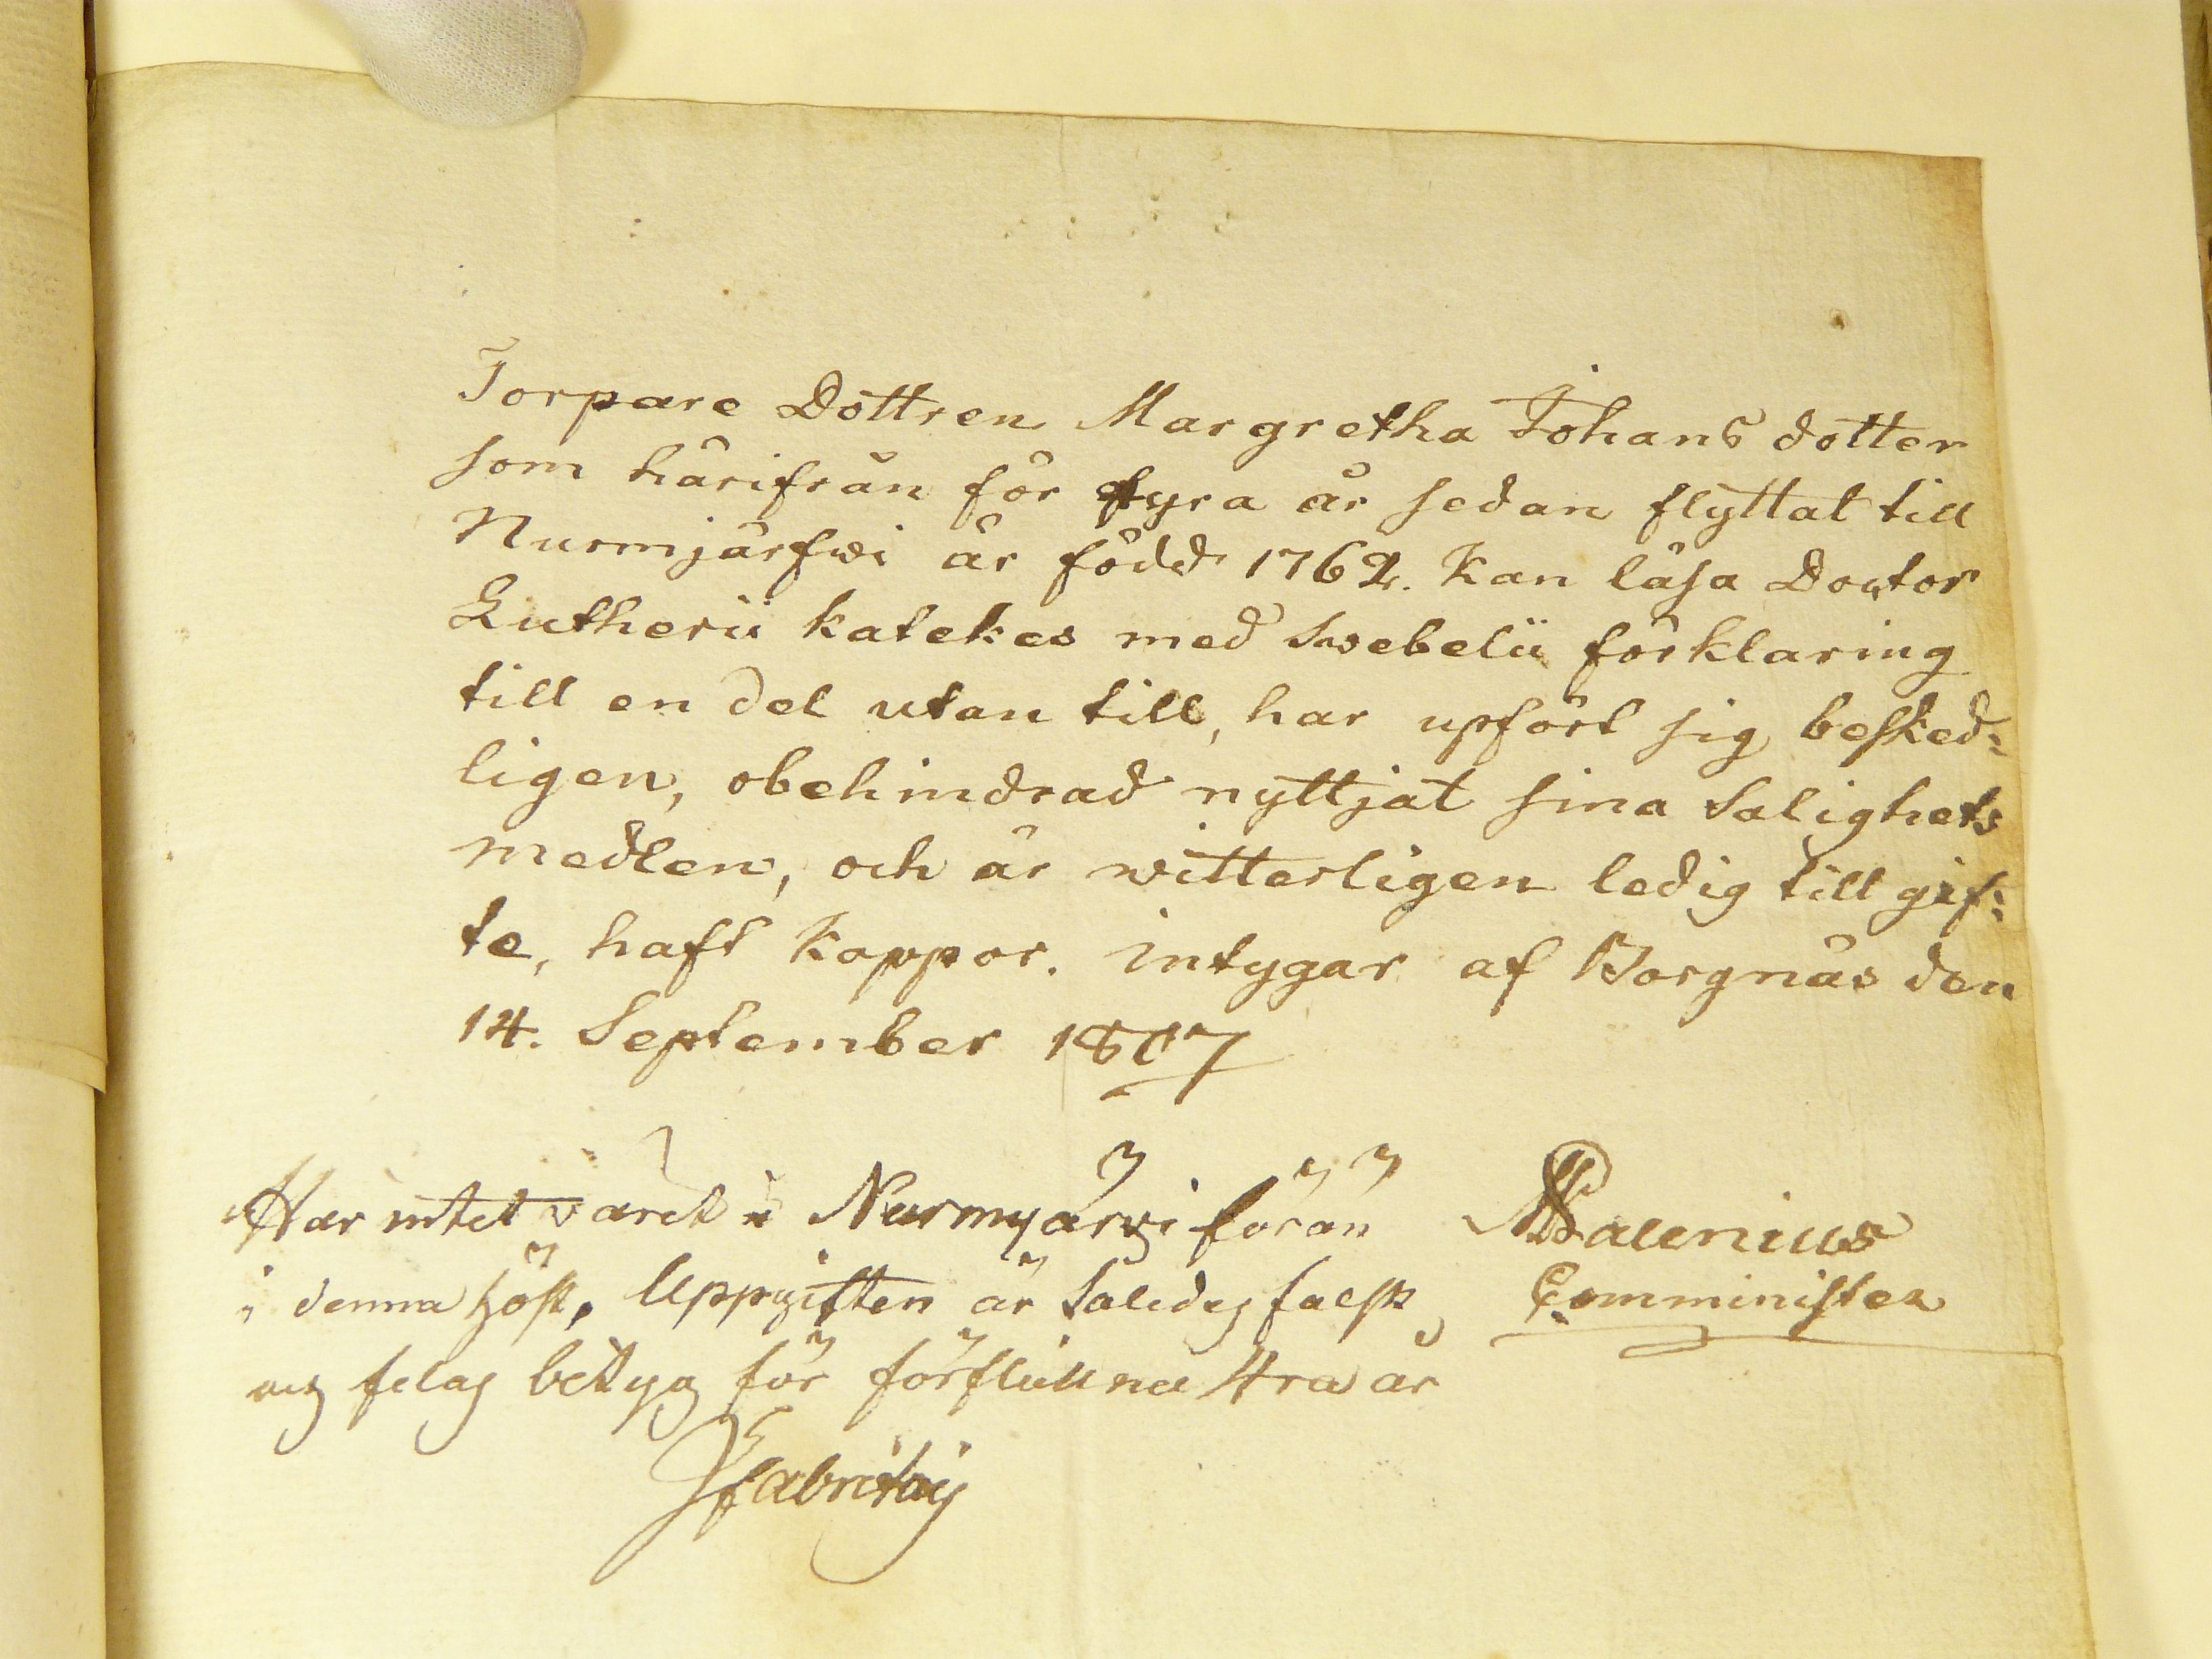 Torpare Dottren Margretha Johans dotter
som härifrån för fyra år sedan flyttat till
Nurmijärfwi är född 1762. Kan läsa Doctor
Lutherii katekes med Swebelii förklaring
till en del utan till, har upfört sig besked:
ligen, obehindrad nyttjat sina Salighets
medlen, och är witterligen ledig till gif:
te, haft Koppor. intygar af Borgnäs den
14. September 1807
Har intet varit i Nurmijärvi förän
i denna höst, Uppgiften är Således falsk,
och felas betyg för förflutna 4ra år
Palenius
Comminister